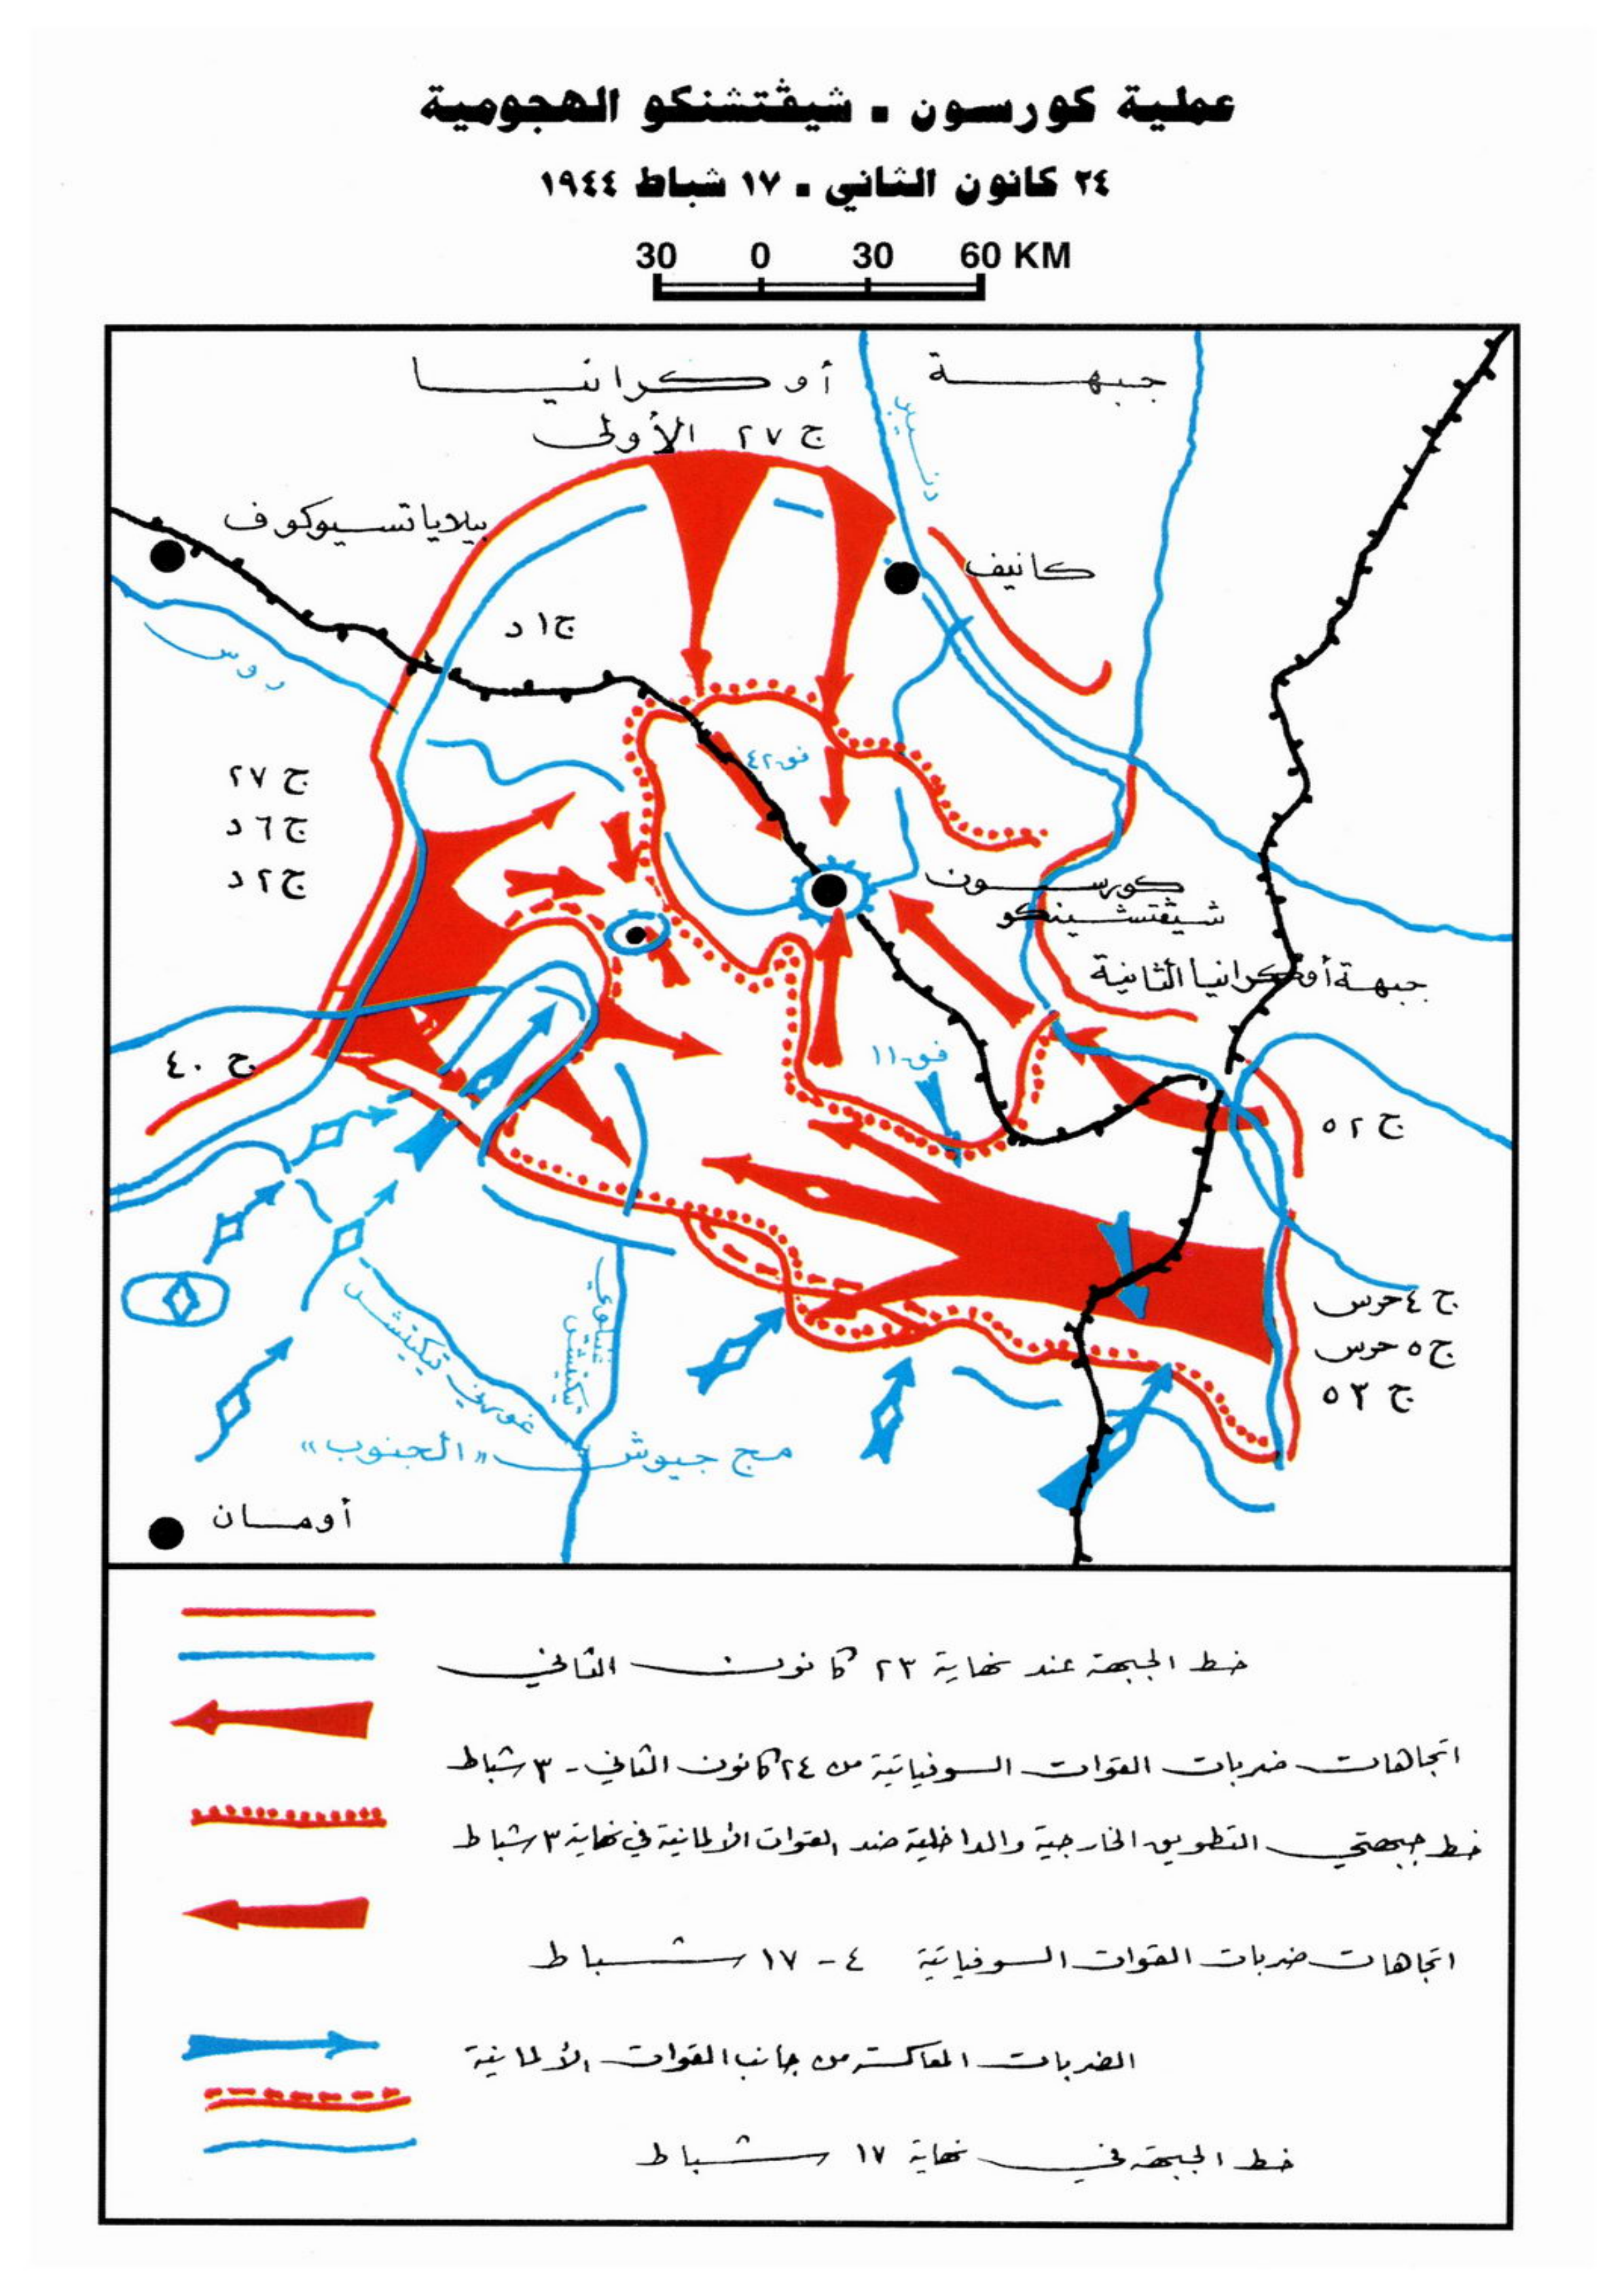 عملية كورسون - شيڤتشنكو الهجومية
٢٤ كانون الثاني - ١٧ شباط ١٩٤٤
30 0 30 60 KM
جبهة أوكرانيا
ج ٢٧ الأولى
دنيبر
بيلاياتسيوكوف
كانيف
ج ١ د
روس
ج ٢٧
ج ٦ د
ج ٢ د
فق ٤٢
كورسون
شيڤتشينكو
جبهة أوكرانيا الثانية
ج ٤٠
فق ١١
ج ٥٢
ج ٤ حرس
ج ٥ حرس
ج ٥٣
غنيلوي تيكيتش
غورني تيكيتش
مج جيوش «الجنوب»
أومان
خط الجبهة عند نهاية ٢٣ كانون الثاني
اتجاهات ضربات القوات السوفياتية من ٢٤ كانون الثاني - ٣ شباط
خط جبهتي التطويق الخارجية والداخلية ضد القوات الألمانية في نهاية ٣ شباط
اتجاهات ضربات القوات السوفياتية ٤ - ١٧ شباط
الضربات المعاكسة من جانب القوات الألمانية
خط الجبهة في نهاية ١٧ شباط